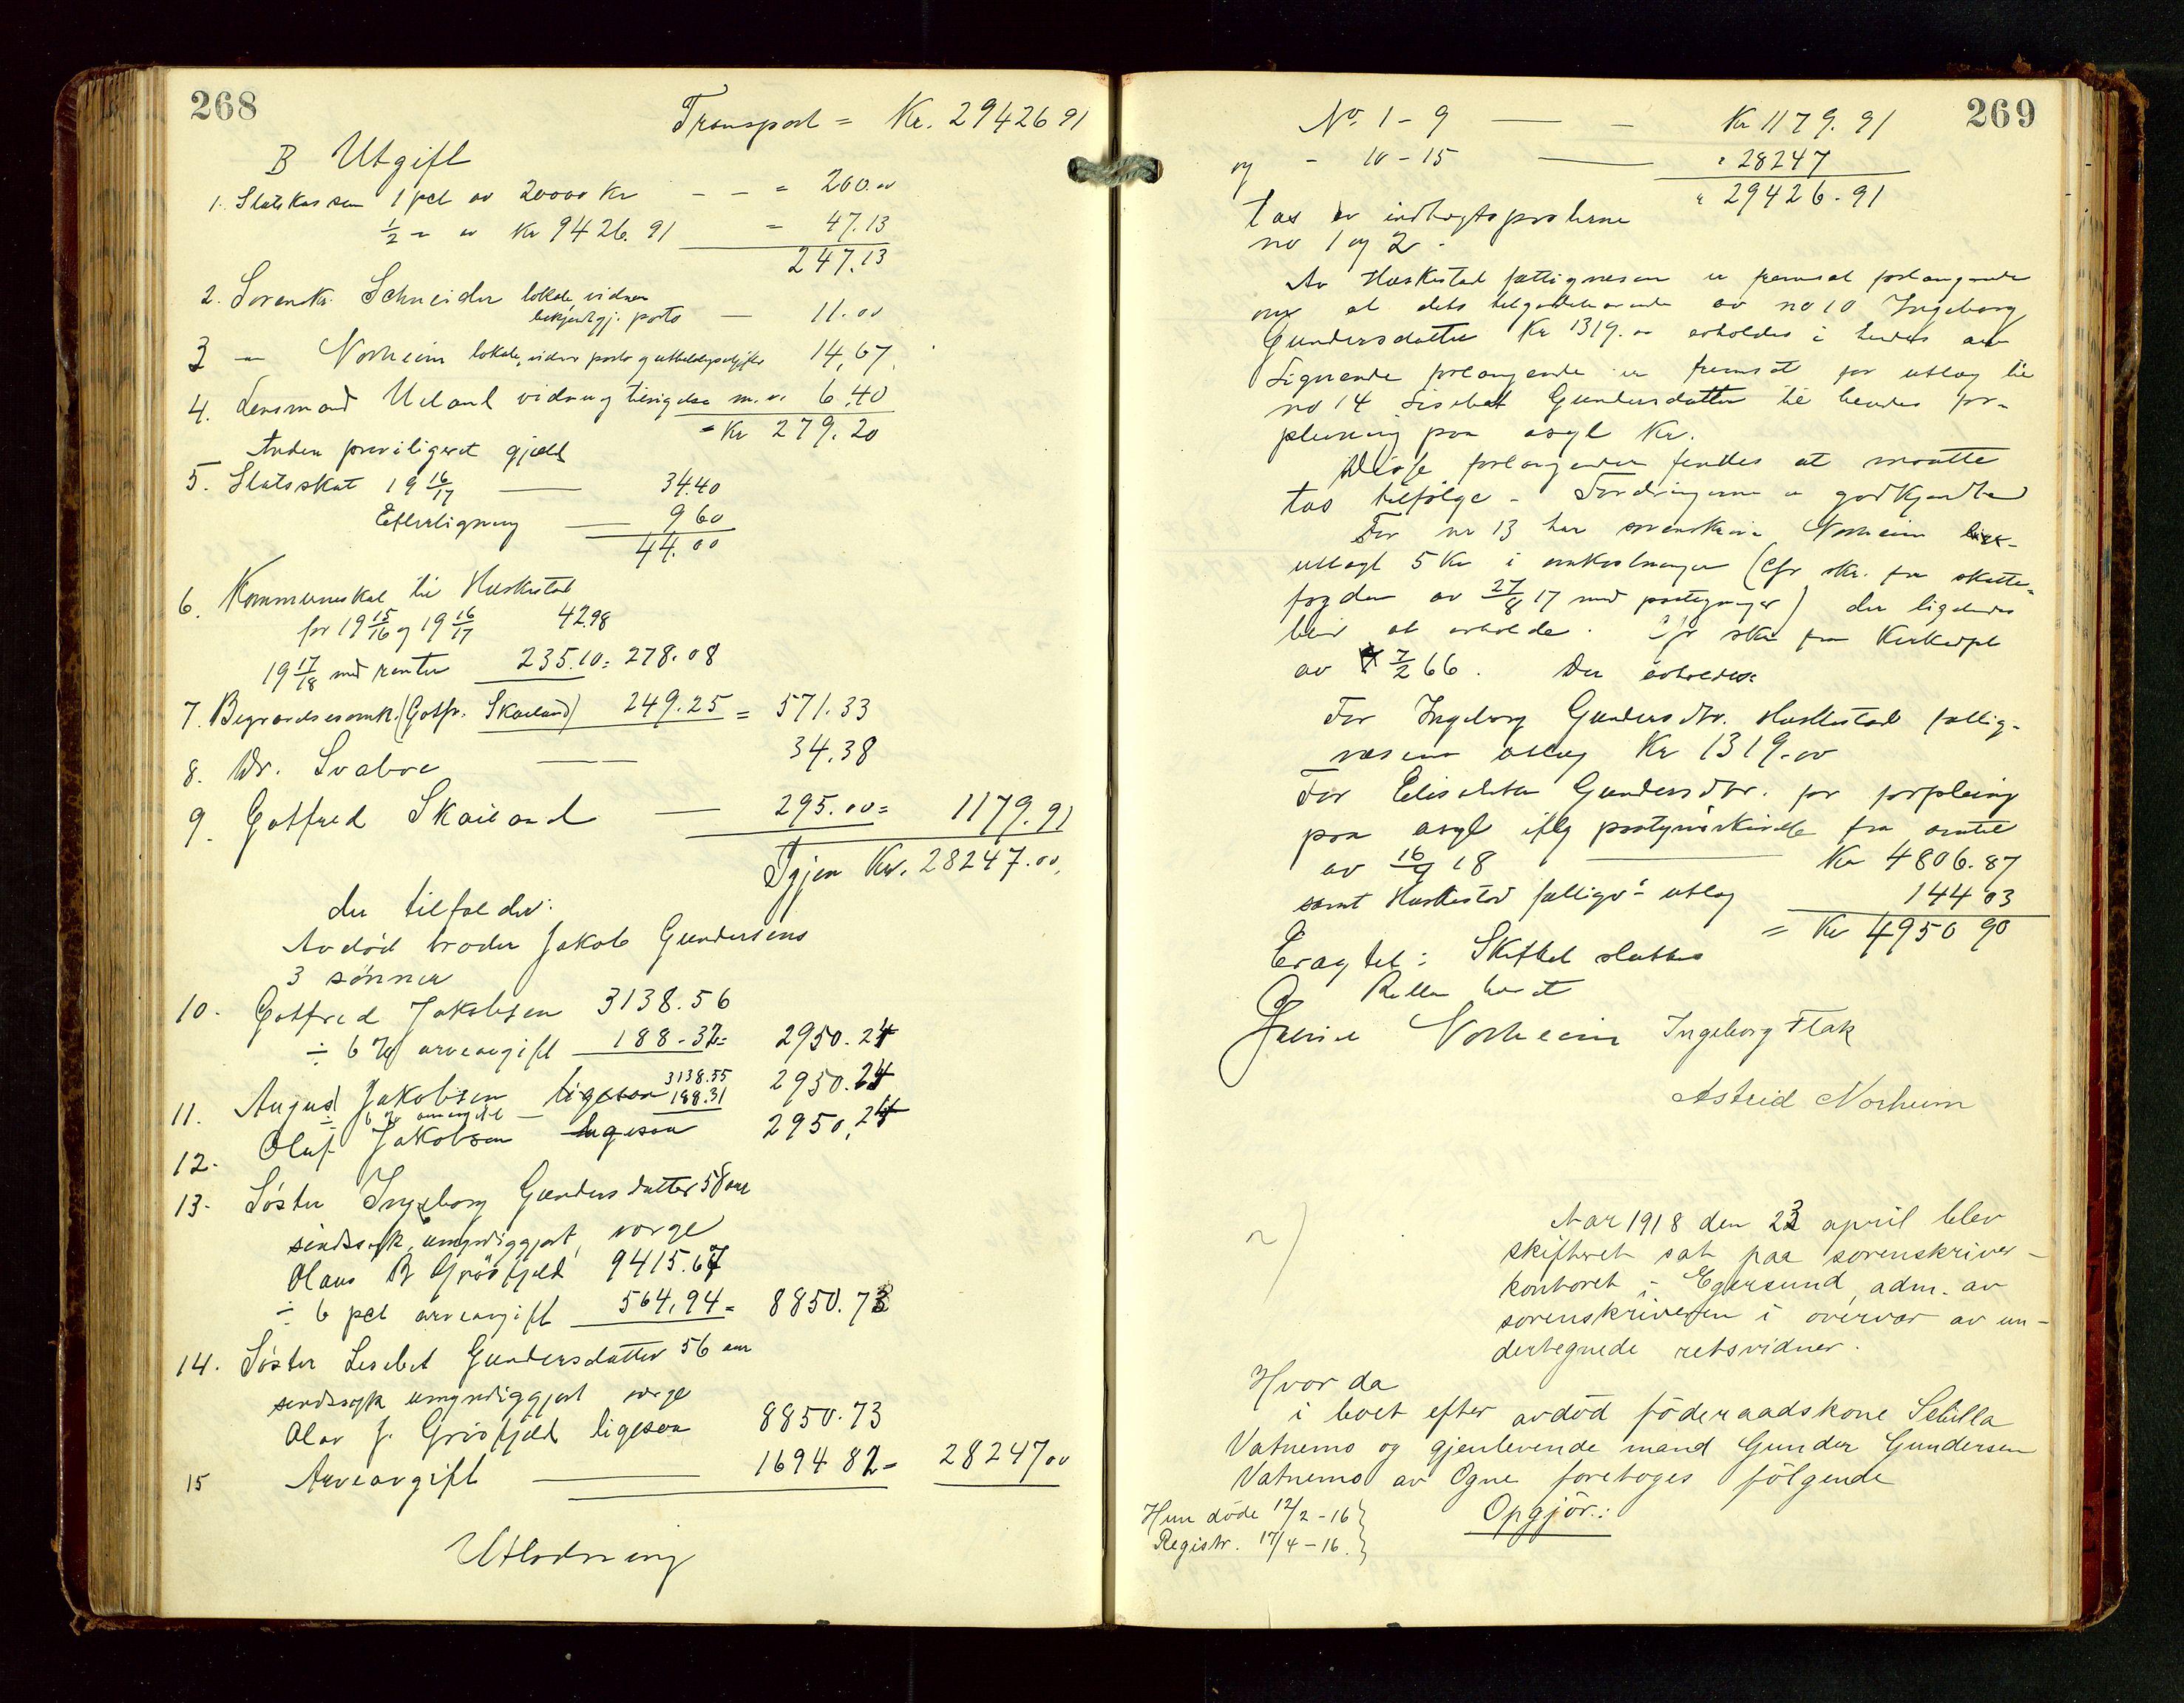 268
Transport = Kr. 29426 91
B Utgift
1. Statskassen 1 pct av 20000 Kr - - = 200.00
1/2 " av Kr 9426.91 = 47.13
247.13
2. Sorenskr. Schneider lokale, vidner
bekjendtgj. porto — 11.00
3 — Norheim lokale, vidner porto og utbetalingsutgifter 14,67
4. Lensmand Ueland vidne og tilsigelse m.v. 6.40
= Kr 279.20
Anden previligeret gjæld
5. Statsskat 19 16/17 — 34.40
Efterligning — 9 60
44.00
6. Kommuneskat til Heskestad
for 19 15/16 og 19 16/17 42.98
19 17/18 med renter 235.10 = 278.08
7. Begravelsesomk. (Gotfr. Skaeland) 249.25 = 571.33
8. Dr. Svaboe — 34.38
9. Gotfred Skaeland — 295.00 = 1179.91
Igjen Kr. 28247.00
der tilfalder:
Avdød broder Jakob Gundersens
3 sønner
10. Gotfred Jakobsen 3138.56
÷ 6 % arveavgift 188.32 = 2950.24
11. August Jakobsen ligesaa 3138.55 2950.24
÷ 6 % arveavgift — 188.31
12. Oluf Jakobsen ligesaa 2950,24
13. Søster Ingeborg Gundersdatter 58 aar
sindssyk, umyndiggjort, verge
Olaus B Grøsfjeld 9415.67
÷ 6 pct arveavgift 564,94 = 8850.73
14. Søster Lisebet Gundersdatter 56 aar
sindssyk umyndiggjort verge
Olav J. Grøsfjeld ligesaa 8850.73
15 Arveavgift — 1694 82 = 28247 00
Utlodning
269
No 1 - 9 — - Kr 1179.91
og - 10 - 15 — " 28247
" 29426.91
tas av indtægtsposterne
no 1 og 2 -
Av Heskestad fattigvæsen er fremsat forlangende
om at dets tilgodehavende av no 10 Ingeborg
Gundersdatter Kr 1319.00 erholdes i hendes arv
Lignende forlangende er fremsat for utlæg til
no 14 Lisebet Gundersdatter til hendes for-
pleining paa asyl Kr.
Disse forlangender fandtes at maatte
tas tilfølge - Fordringerne er godkjendte
For no 13 har sorenskriver Norheim
utlagt 5 Kr i omkostninger (Cfr skr. fra skatte-
fogden av 27/8 17 med paategninger) der ligeledes
blir at erholde. Cfr skr fra Kirkedpt
av 7/2 66. Der erholdes:
For Ingeborg Gundersdtr. Heskestad fattig-
væsens utlæg Kr 1319.00
For Elisabeta Gundersdtr. for forpleining
paa asyl iflg paategnet skrivelse fra amtet
av 16/9 18 — Kr 4806.87
samt Heskestad fattigv: utlæg 144 03
= Kr 4950 90
Eragtet: Skiftet sluttes
Retten hævet
Norheim Ingeborg Flak
Astrid Norheim
2)
Aar 1918 den 23 april blev
skifteret sat paa sorenskriver-
kontoret i Egersund, adm. av
sorenskriveren i overvær av un-
dertegnede retsvidner.
Hvor da
i boet efter avdød föderaadskone Sebilla
Vatnemo og gjenlevende mand Gunder Gundersen
Vatnemo av Ogne foretoges følgende
Hun döde 12/2 - 16 }
Opgjör.:
Registr. 17/4 - 16. }